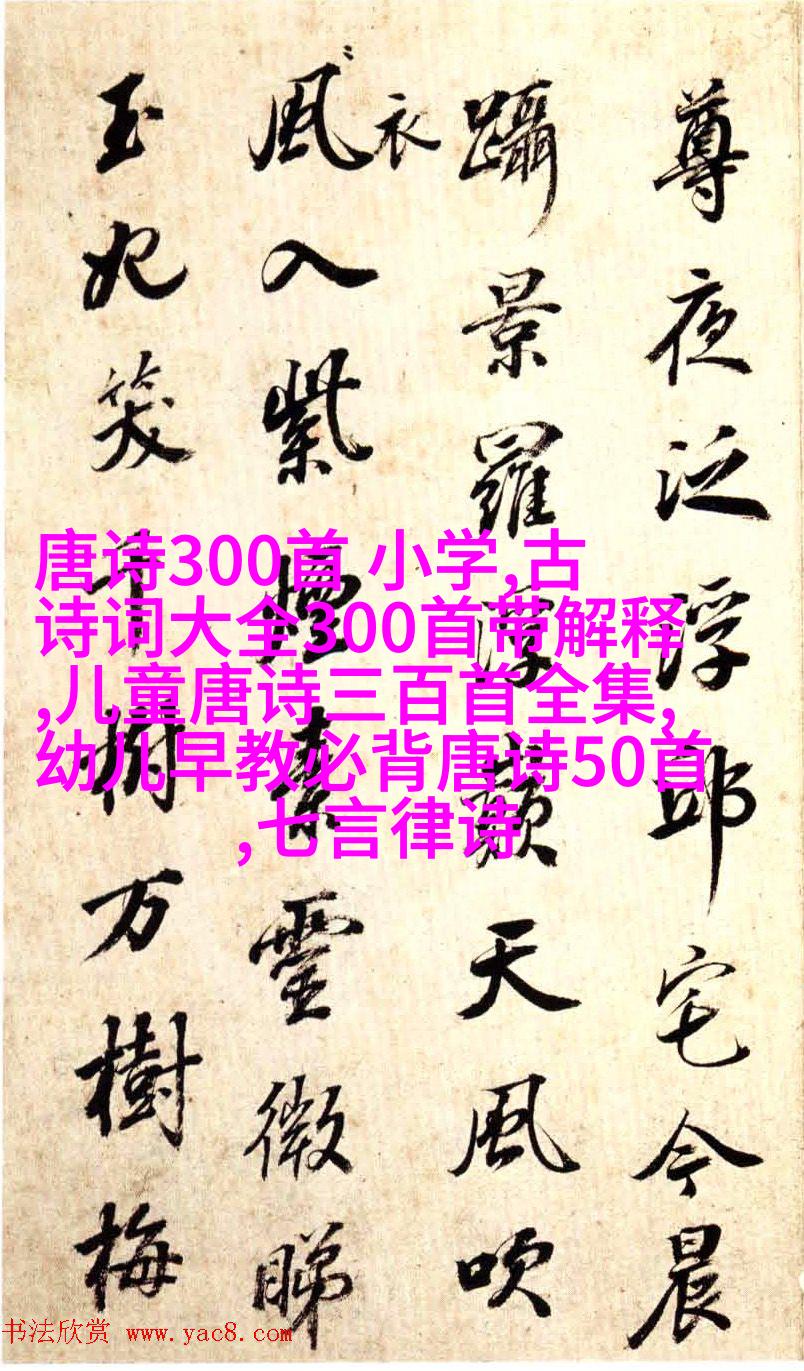 尊夜泛浮邱宅今晨
躡景羅浮巔天風吹
衣
風入紫煙素靈微睇
玉妃笑千樹万樹梅
唐诗300首 小学,古
诗词大全300首带解释
,儿童唐诗三百首全集,
幼儿早教必背唐诗50首
,七言律诗
书法欣赏 www.yac8.com